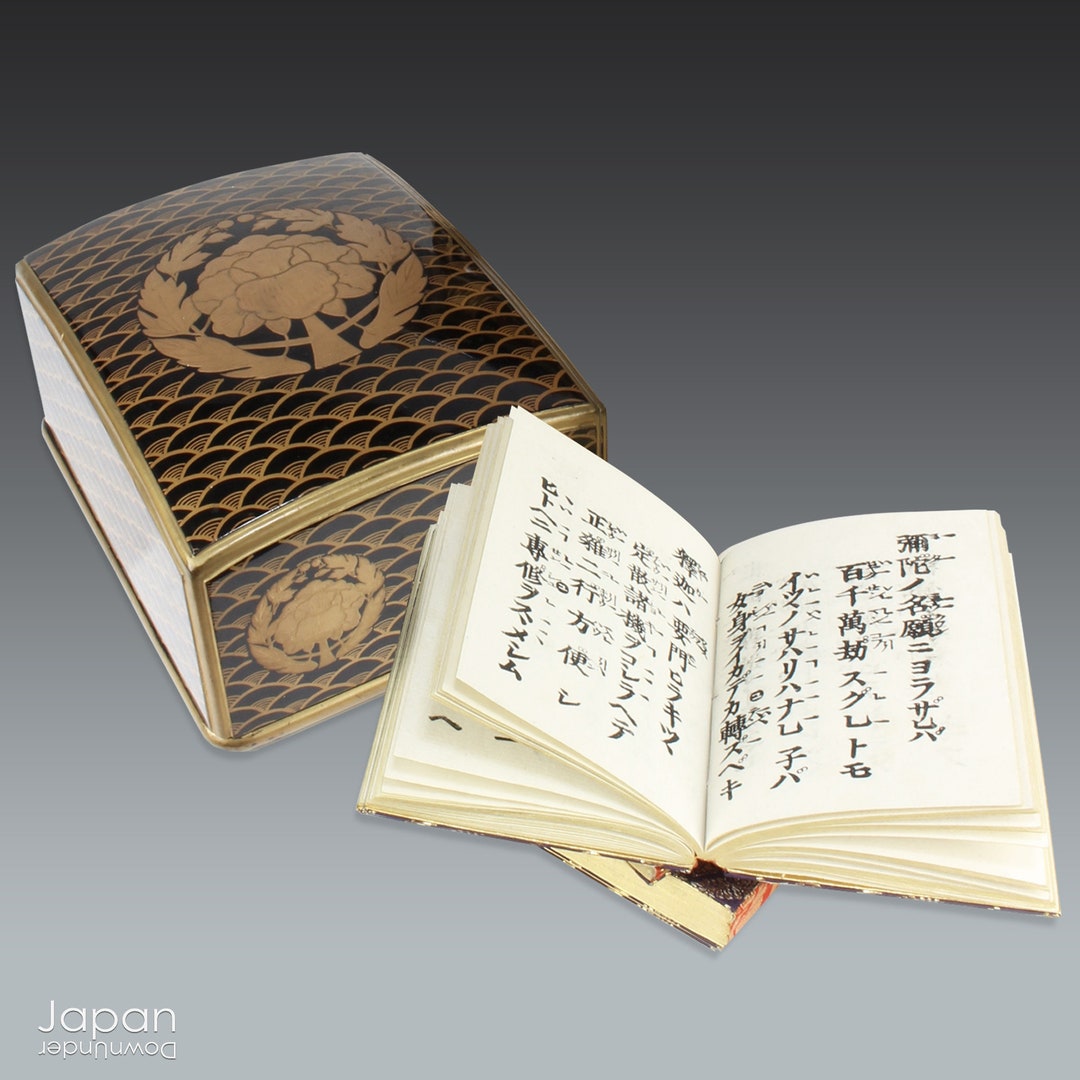 彌陀ノ名願ニヨラザレバ
百千萬劫スグレトモ
イツヽノサハリハナレ子バ
女身ヲイカデカ轉ズベキ
釋迦ハ要門ヒラキツヽ
定散諸機ヲコシラヘテ
正雜二行方便シ
ヒトヘニ專修ヲスヽメシム
Japan
DownUnder